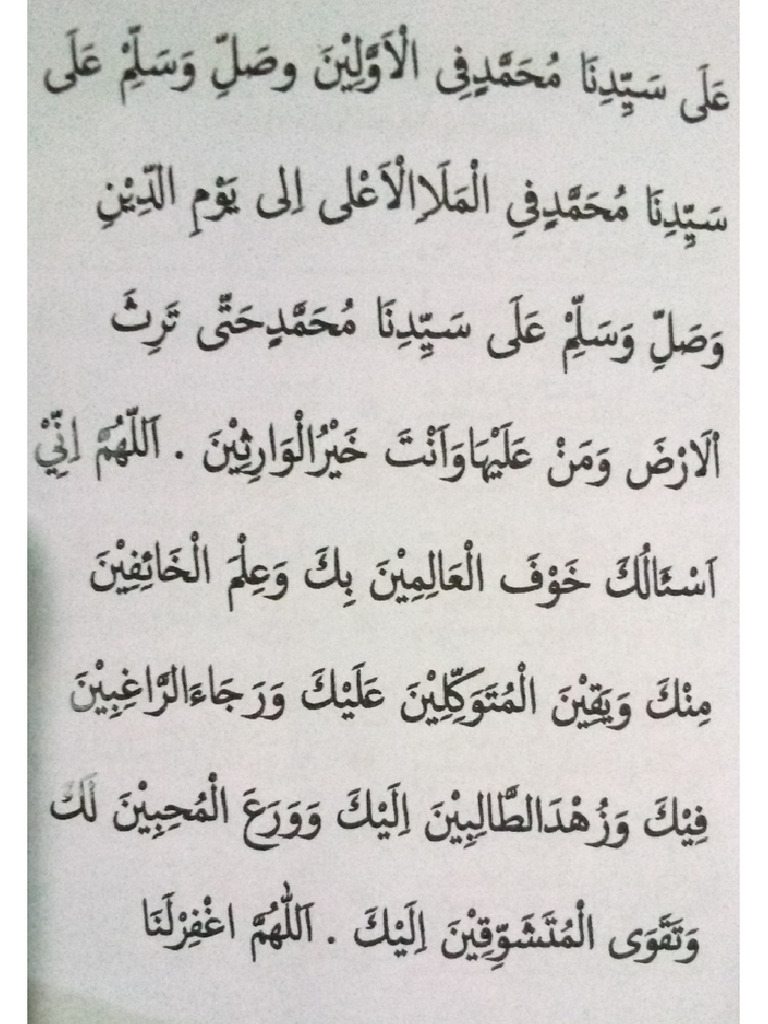 عَلَى سَيِّدِنَا مُحَمَّدٍفِى الْاَوَّلِيْنَ وصَلِّ وَسَلِّمْ عَلَى
سَيِّدِنَا مُحَمَّدٍفِي الْمَلَاِالْاَعْلى اِلى يَوْمِ الدِّيْنِ
وَصَلِّ وَسَلِّمْ عَلَى سَيِّدِنَا مُحَمَّدٍحَتّى تَرِثَ
اْلَارْضَ وَمَنْ عَلَيْهَاوَاَنْتَ خَيْرُالْوَارِثِيْنَ . اَللّهُمَّ اِنِّيْ
اَسْئَالُكَ خَوْفَ الْعَالِمِيْنَ بِكَ وَعِلْمَ الْخَائِفِيْنَ
مِنْكَ وَيَقِيْنَ الْمُتَوَكِّلِيْنَ عَلَيْكَ وَرَجَاءَالرَّاغِبِيْنَ
فِيْكَ وَزُهْدَالطَّالِبِيْنَ اِلَيْكَ وَوَرَعَ الْمُحِبِيْنَ لَكَ
وَتَقْوَى الْمُتَشَوِّقِيْنَ اِلَيْكَ . اَللّٰهُمَّ اغْفِرْلَنَا